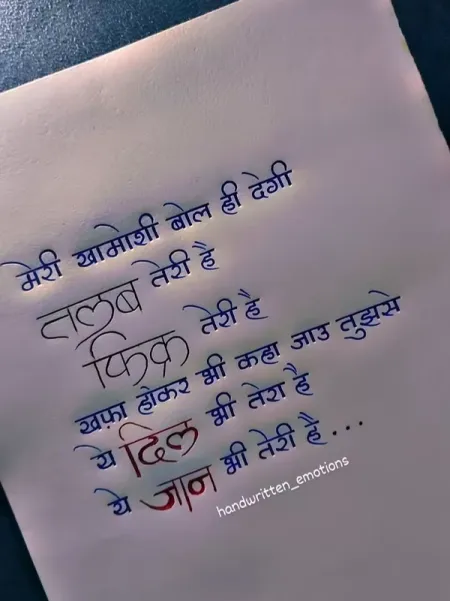 मेरी खामोशी बोल ही देगी
तलब तेरी है
फिक्र तेरी है
खफ़ा होकर भी कहा जाउ तुझसे
ये दिल भी तेरा है
ये जान भी तेरी है...
handwritten_emotions